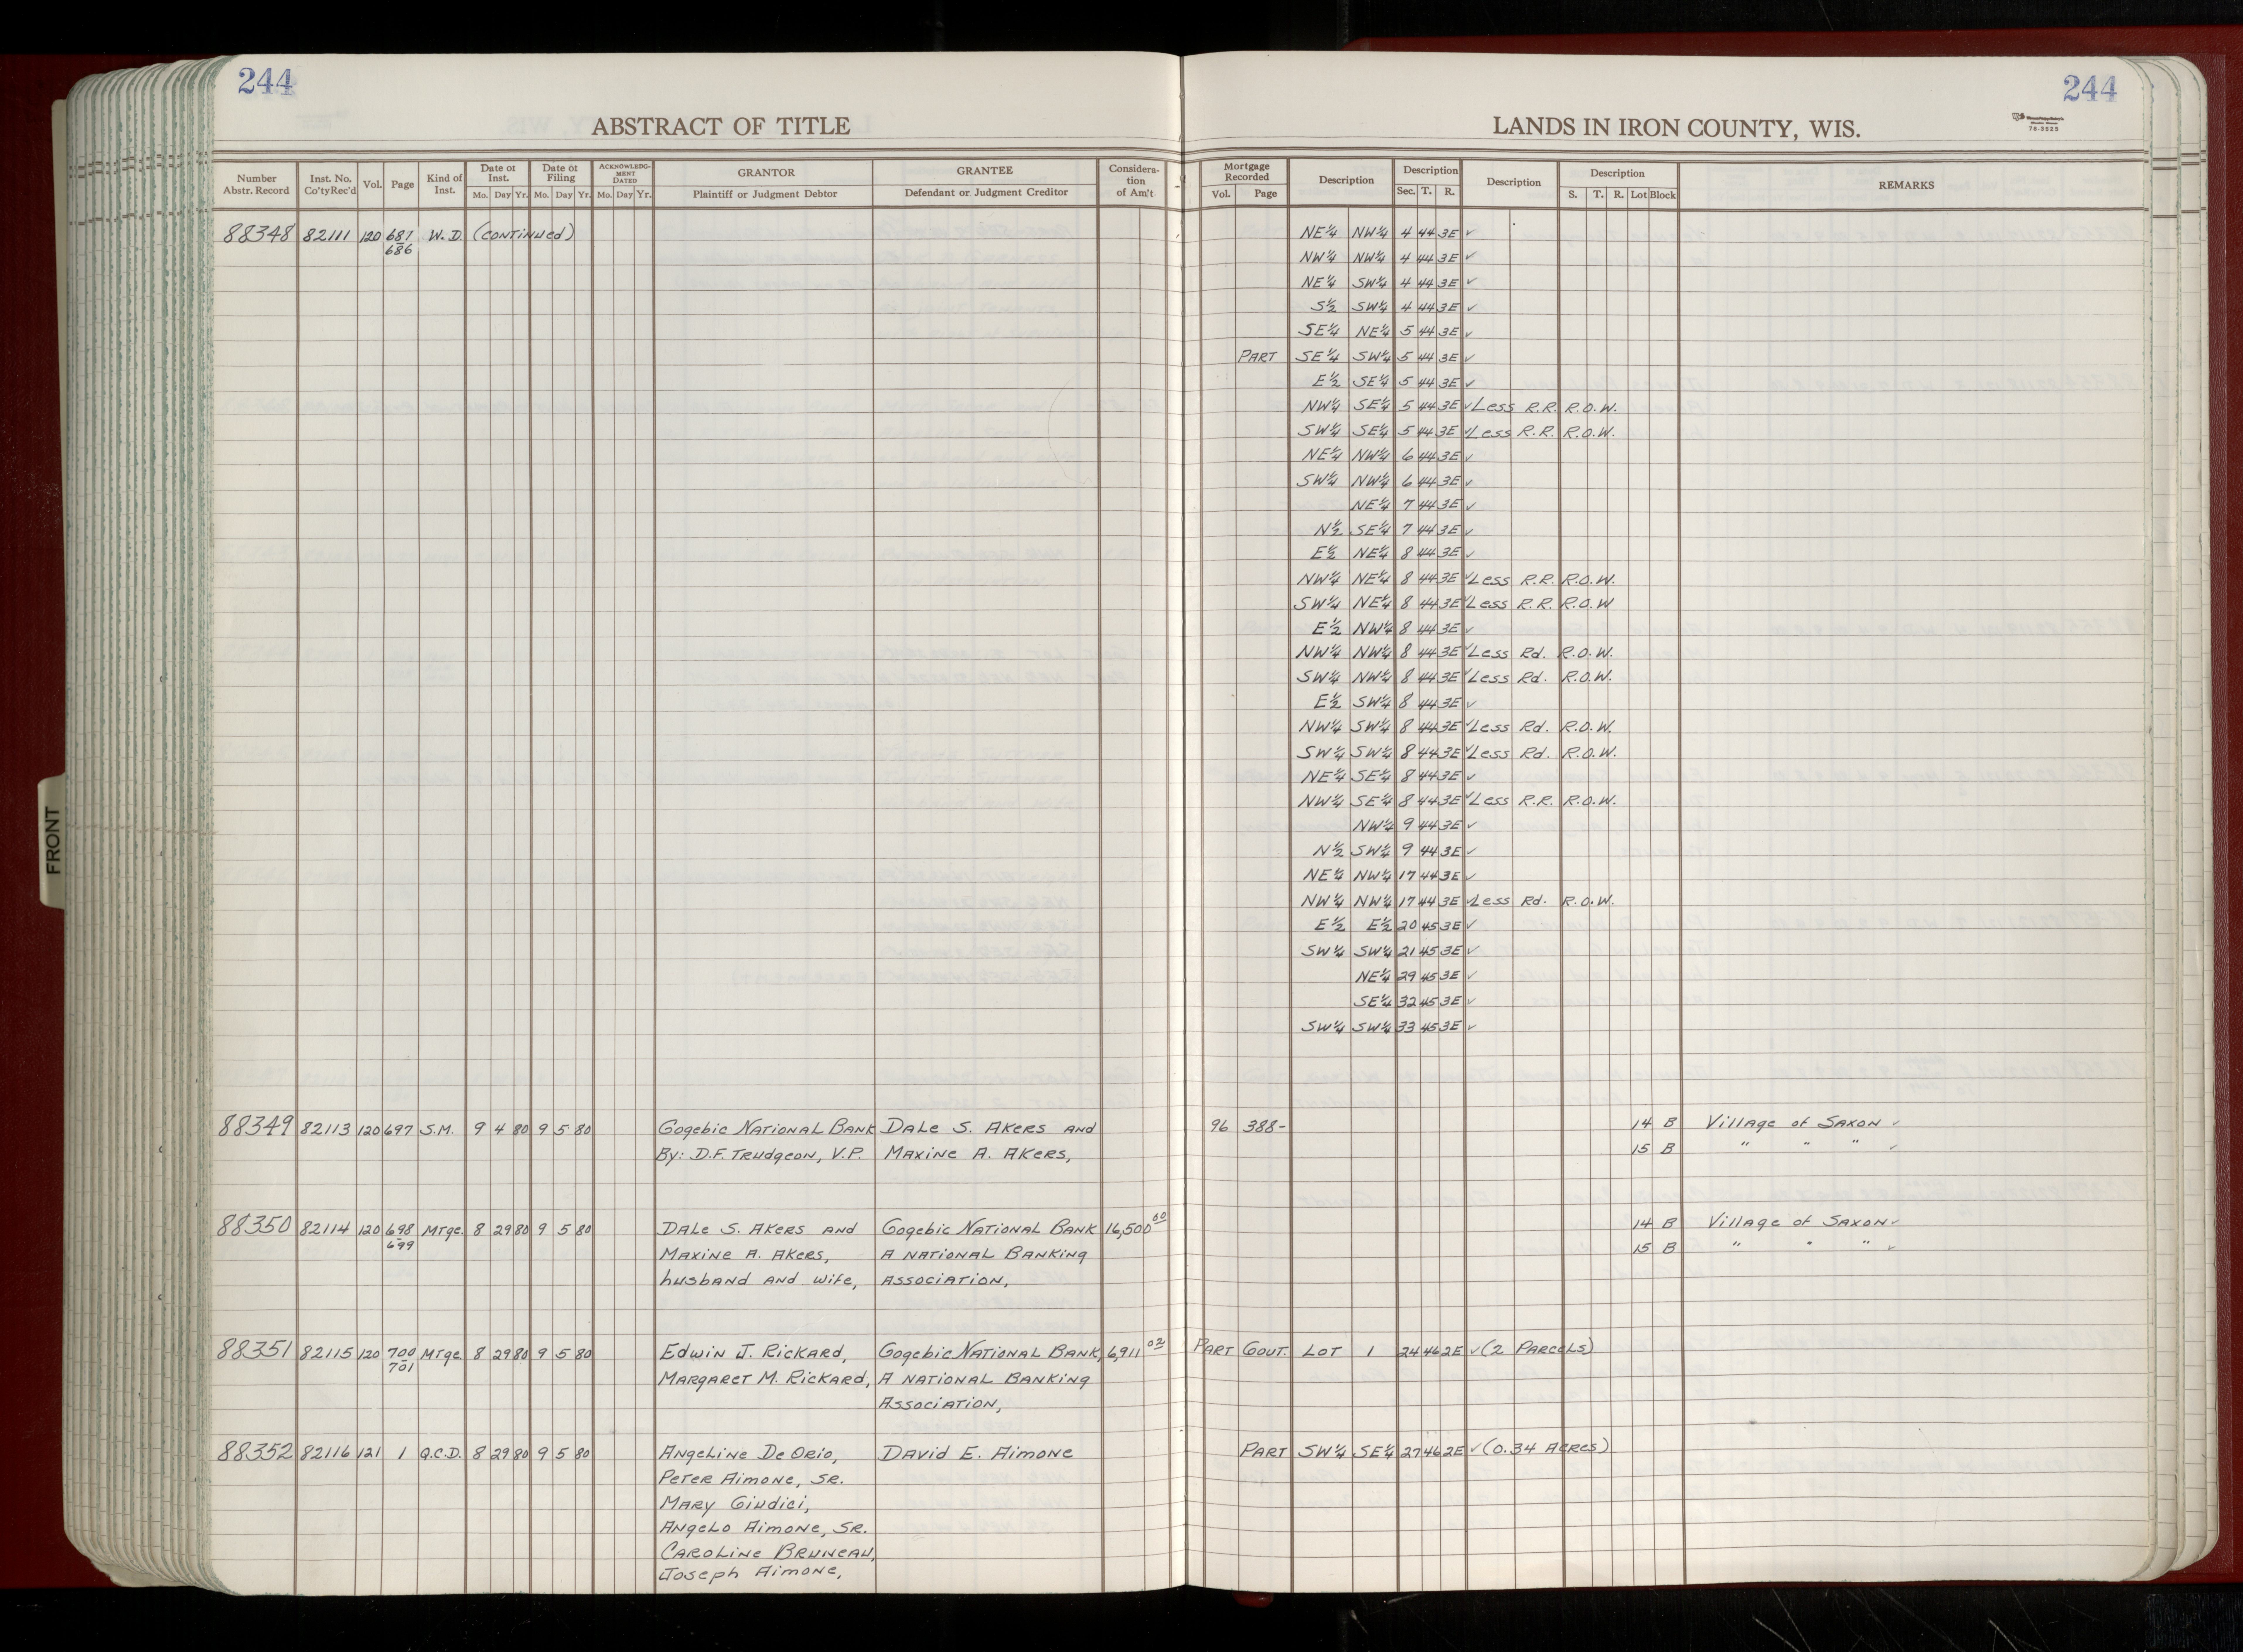 244
244
ABSTRACT OF TITLE
LANDS IN IRON COUNTY, WIS.
78-3525
Number Abstr. Record Inst. No. Co'ty Rec'd Vol. Page Kind of Inst. Date of Inst. Mo. Day Yr. Date of Filing Mo. Day Yr. ACKNOWLEDGMENT DATED Mo. Day Yr. GRANTOR Plaintiff or Judgment Debtor GRANTEE Defendant or Judgment Creditor Consideration of Am't Mortgage Recorded Vol. Page Description Description Sec. T. R. Description Description S. T. R. Lot Block REMARKS
88348 82111 120 687 W.D. (continued) NE¼ NW¼ 4 44 3E ✓
686 NW¼ NW¼ 4 44 3E ✓
NE¼ SW¼ 4 44 3E ✓
S½ SW¼ 4 44 3E ✓
SE¼ NE¼ 5 44 3E ✓
PART SE¼ SW¼ 5 44 3E ✓
E½ SE¼ 5 44 3E ✓
NW¼ SE¼ 5 44 3E ✓ Less R.R. R.O.W.
SW¼ SE¼ 5 44 3E ✓ Less R.R. R.O.W.
NE¼ NW¼ 6 44 3E ✓
SW¼ NW¼ 6 44 3E ✓
NE¼ 7 44 3E ✓
N½ SE¼ 7 44 3E ✓
E½ NE¼ 8 44 3E ✓
NW¼ NE¼ 8 44 3E ✓ Less R.R. R.O.W.
SW¼ NE¼ 8 44 3E ✓ Less R.R. R.O.W
E½ NW¼ 8 44 3E ✓
NW¼ NW¼ 8 44 3E ✓ Less Rd. R.O.W.
SW¼ NW¼ 8 44 3E ✓ Less Rd. R.O.W.
E½ SW¼ 8 44 3E ✓
NW¼ SW¼ 8 44 3E ✓ Less Rd. R.O.W.
SW¼ SW¼ 8 44 3E ✓ Less Rd. R.O.W.
NE¼ SE¼ 8 44 3E ✓
NW¼ SE¼ 8 44 3E ✓ Less R.R. R.O.W.
NW¼ 9 44 3E ✓
N½ SW¼ 9 44 3E ✓
NE¼ NW¼ 17 44 3E ✓
NW¼ NW¼ 17 44 3E ✓ Less Rd. R.O.W.
E½ E½ 20 45 3E ✓
SW¼ SW¼ 21 45 3E ✓
NE¼ 29 45 3E ✓
SE¼ 32 45 3E ✓
SW¼ SW¼ 33 45 3E ✓
88349 82113 120 697 S.M. 9 4 80 9 5 80 Gogebic National Bank Dale S. Akers and 96 388- 14 B Village of Saxon ✓
By: D.F. Trudgeon, V.P. Maxine A. Akers, 15 B " " " ✓
88350 82114 120 698 Mtge. 8 29 80 9 5 80 Dale S. Akers and Gogebic National Bank 16,500 00 14 B Village of Saxon ✓
699 Maxine A. Akers, A National Banking 15 B " " " ✓
husband and wife, Association,
88351 82115 120 700 Mtge. 8 29 80 9 5 80 Edwin J. Rickard, Gogebic National Bank, 6,911 02 Part Gout. Lot 1 24 46 2E ✓ (2 Parcels)
701 Margaret M. Rickard, A National Banking
Association,
88352 82116 121 1 Q.C.D. 8 29 80 9 5 80 Angeline De Orio, David E. Aimone Part SW¼ SE¼ 27 46 2E ✓ (0.34 Acres)
Peter Aimone, Sr.
Mary Giudici,
Angelo Aimone, Sr.
Caroline Bruneau,
Joseph Aimone,
FRONT